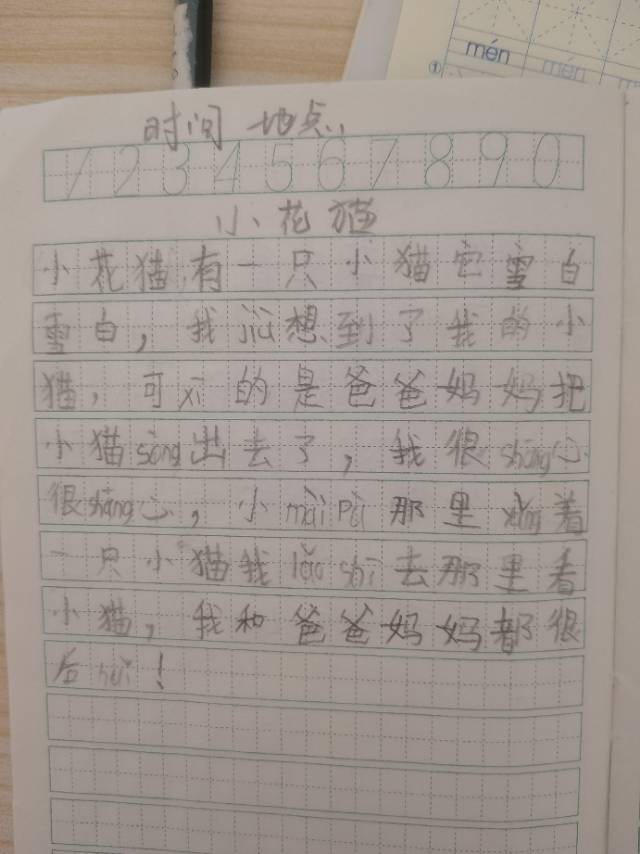 mén mén m
①
时间 地点、
1 2 3 4 5 6 7 8 9 0
小花猫
小花猫有一只小猫它雪白
雪白，我jiù想到了我的小
猫，可xī的是爸爸妈妈把
小猫sòng出去了，我很shāng心
很shāng心，小mài pù那里yǎng着
一只小猫我lǎo shì去那里看
小猫，我和爸爸妈妈都很
后huǐ！